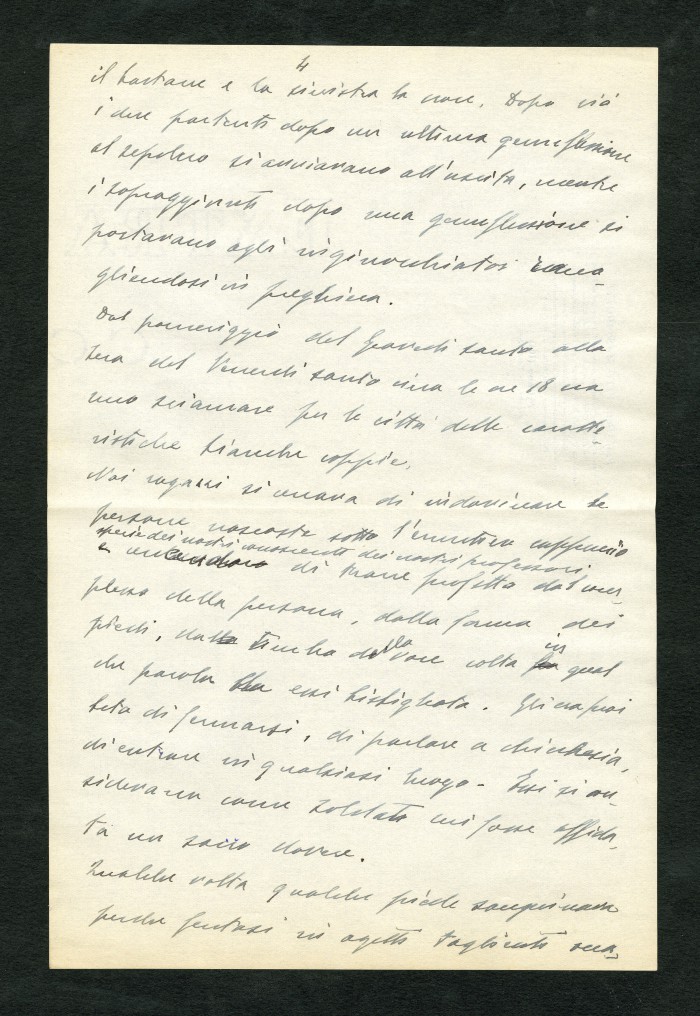 4
il bastone e la sinistra la croce. Dopo ciò
i due partenti dopo un ultima genuflessione
al sepolcro si avviavano all'uscita, mentre
i sopraggiunti dopo una genuflessione si
portavano agli inginocchiatoi racco-
gliendosi in preghiera.
Dal pomeriggio del Giovedì santo alla
sera del Venerdì santo circa le ore 18 era
uno sciamare per le città delle caratte-
ristiche bianche coppie.
Noi ragazzi si cercava di indovinare le
persone nascoste sotto l'emmetico cappuccio
specie dei nostri conoscenti dei nostri professori
e di trarre profitto dal com-
plesso della persona, dalla forma dei
piedi, dal timbro della voce colta in qual
che parola essi bisbigliata. Gli era proi
bito di fermarsi, di parlare a chicchesia,
di entrare in qualsiasi luogo. Essi si con-
sideravano come soldati cui fosse affida-
to un sacro dovere.
Qualche volta qualche piede sanguinava
perchè feritosi in oggetti taglienti